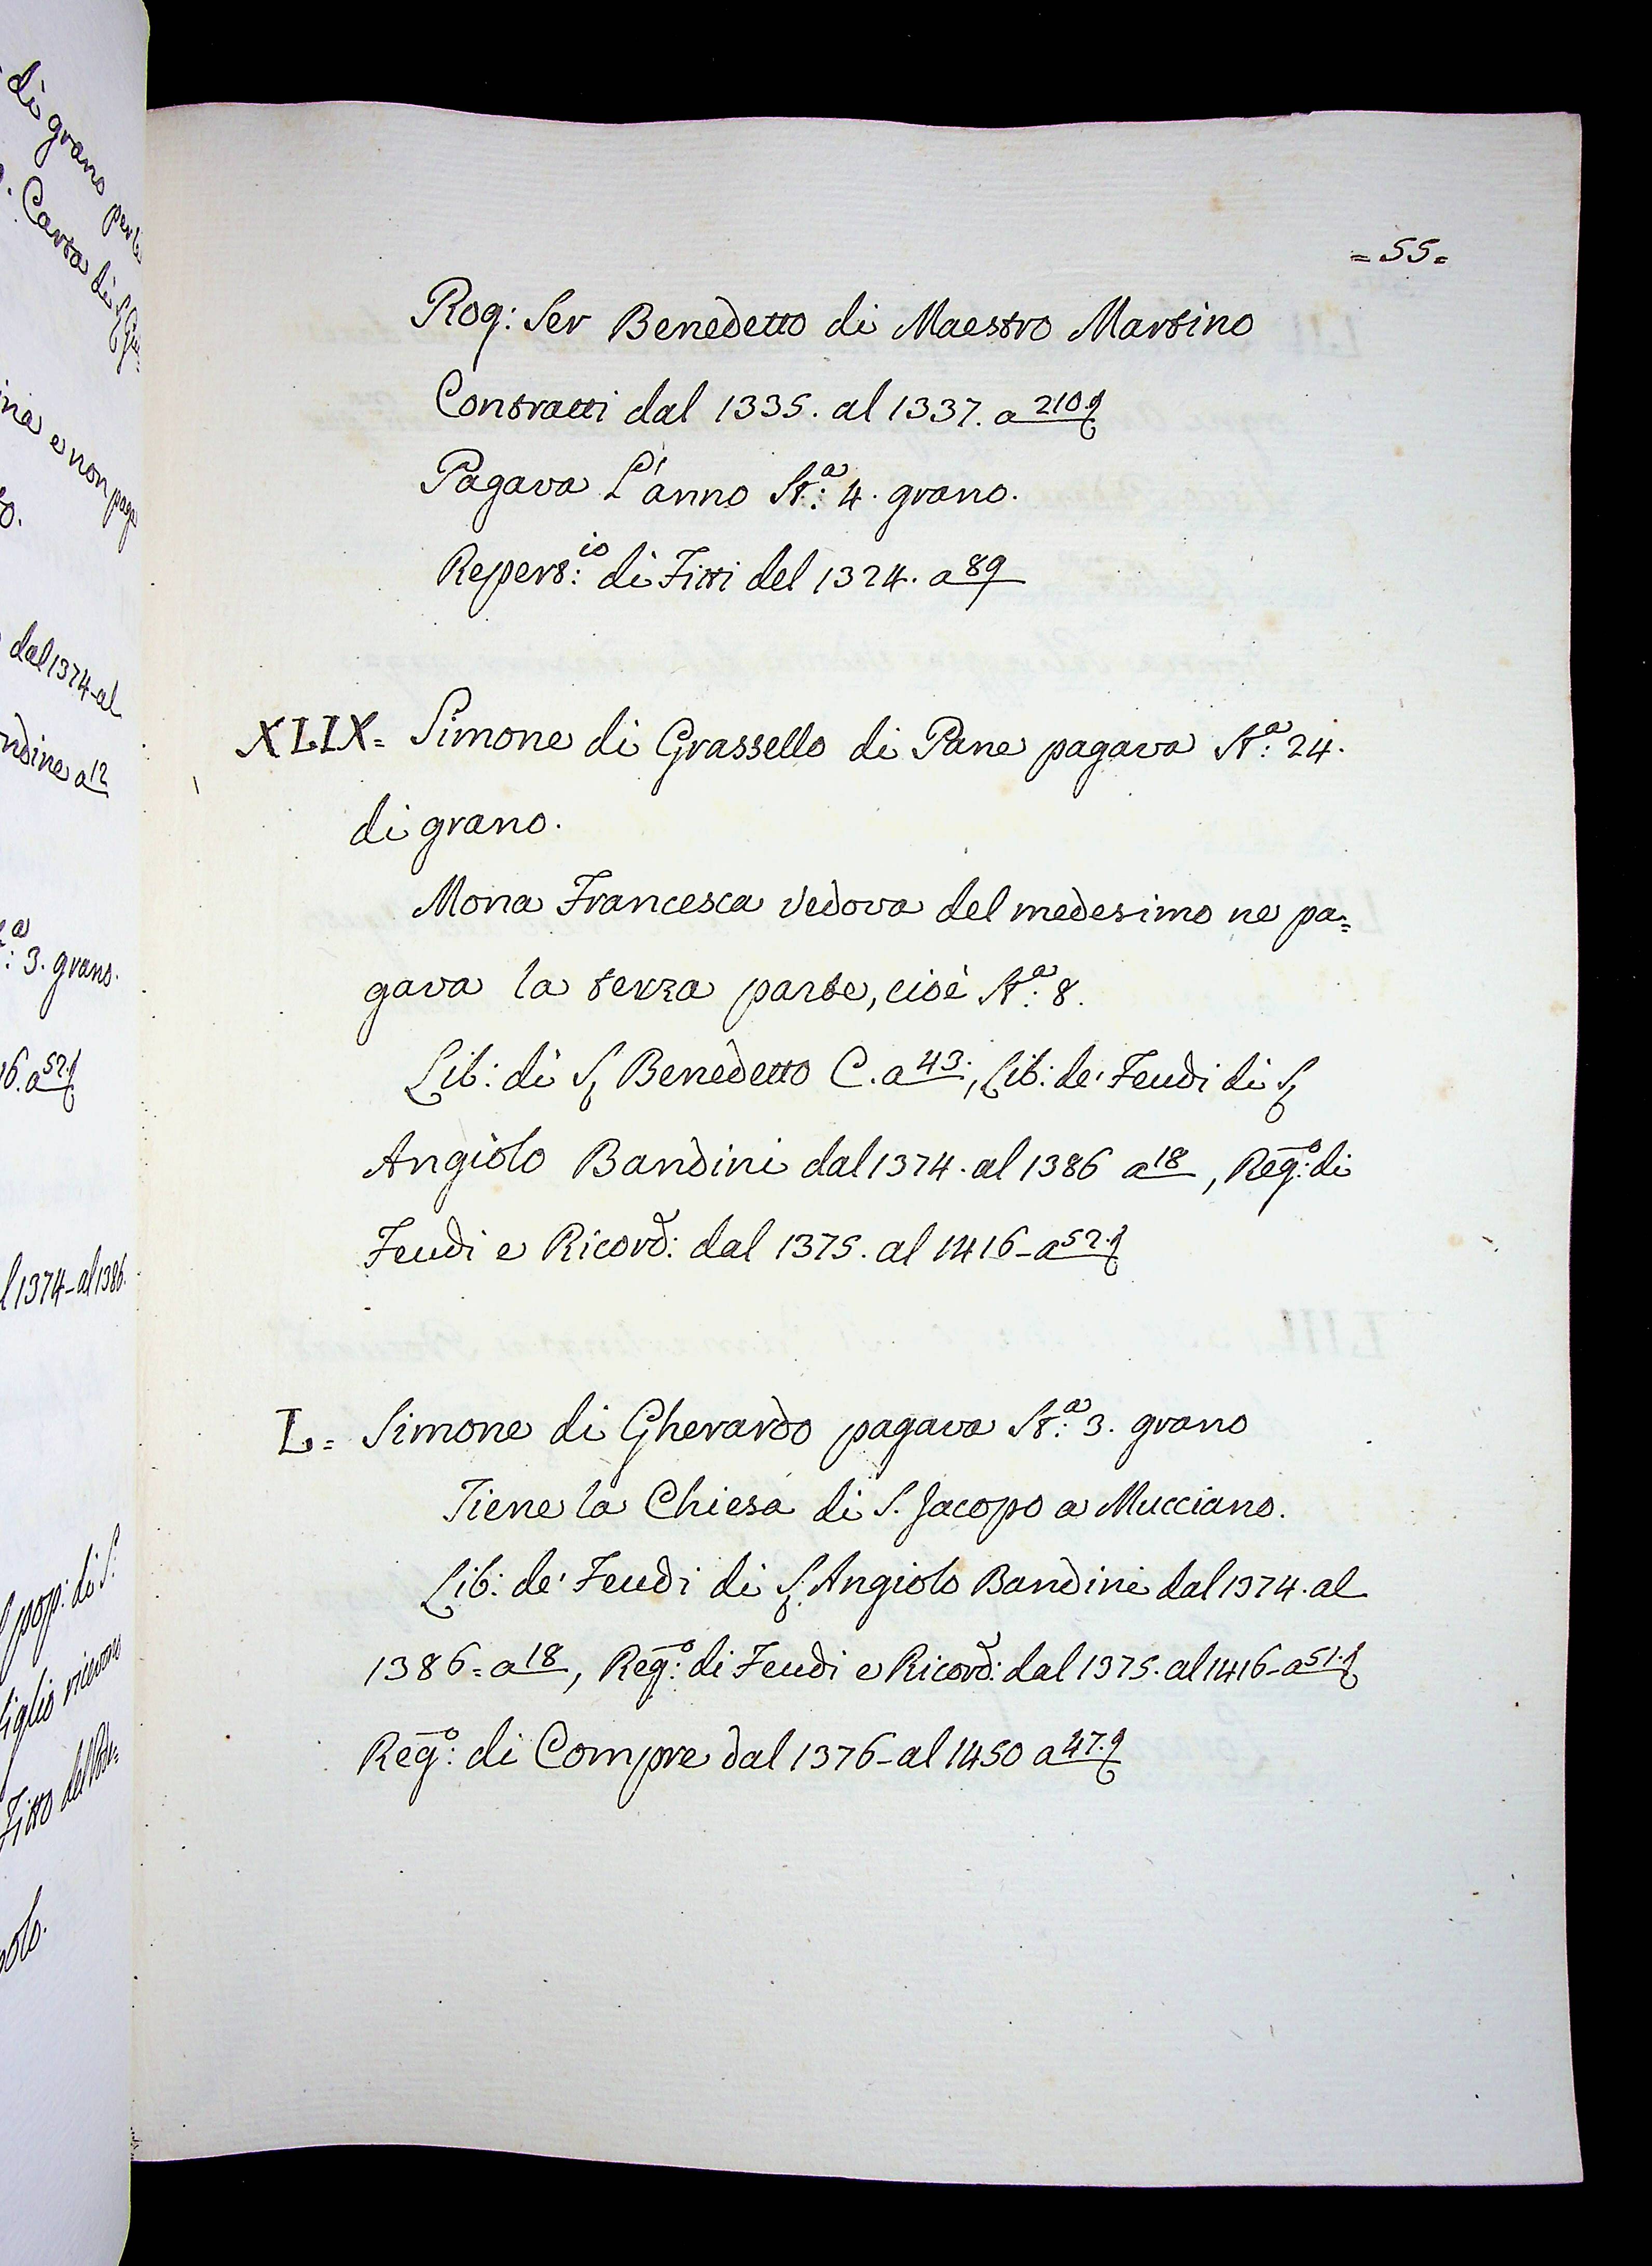 di grano per le
Carta di
e non paga
dal 1374-al
ndine a 12
3. grano.
16. a 52.
l 1374-al 1386.
pop: di S:
figlio ricevon
Fitto del Pode=
polo.
= 55 =
Rog: Ser Benedetto di Maestro Martino
Contratti dal 1335. al 1337. a 210.t
Pagava L'anno St.a: 4. grano.
Repert:io di Fitti del 1324. a 89
XLIX= Simone di Grassello di Pane pagava St.a: 24.
di grano.
Mona Francesca Vedova del medesimo ne pa=
gava la terza parte, cioè St.a: 8.
Lib: di S. Benedetto C. a 43., Lib: de' Feudi di S.
Angiolo Bandini dal 1374. al 1386 a 18, Reg:o di
Feudi e Ricord: dal 1375. al 1416- a 52.t
L= Simone di Gherardo pagava St.a: 3. grano
Tiene la Chiesa di S. Jacopo a Mucciano.
Lib: de' Feudi di S. Angiolo Bandini dal 1374. al
1386= a 18, Reg:o di Feudi e Ricord: dal 1375. al 1416- a 51.t
Reg:o di Compre dal 1376- al 1450 a 47.t